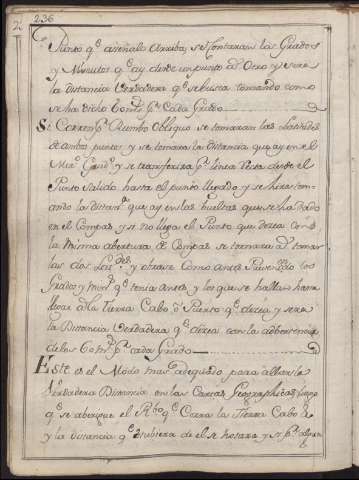 236
Punto q.e a señalo Arriba, se Contaran los Grados
y Minutos q.e ay desde un punto al Otro y sera
la distancia Verdadera q.e se busca tomando como
se ha dicho 60 m.s p.r Cada Grado
Si Corren p.r Rumbo Obliquo se tomaran las latitudes
de ambos puntos, y se tomara la distancia que ay en el
y se transferira p.r linea Recta desde el
Punto Salido hasta el punto llegado y se hira tom
ando la distan.a que ay en las bueltas que se ha dado
en el Compas y si no llega el Punto que desea con
la misma abertura de Compas se tornara a tomar
las dos y otra vez Como antes los
Grados y min.s q.e tenia antes y los que se hallan hasta
llegar a la Tierra Cabo ô Puerto q.e desea y sera
la Distancia Verdadera q.e desea con la advertencia
de los 60 m.s p.r cada Grado
Este es el Modo mas adequado para allar la
Verdadera Distancia en las Cartas Geographicas luego
q.e se aberigue el R.bo q.e Corra la Tierra Cabo &
y la distancia q.e hubiera de el se notara y si p.r